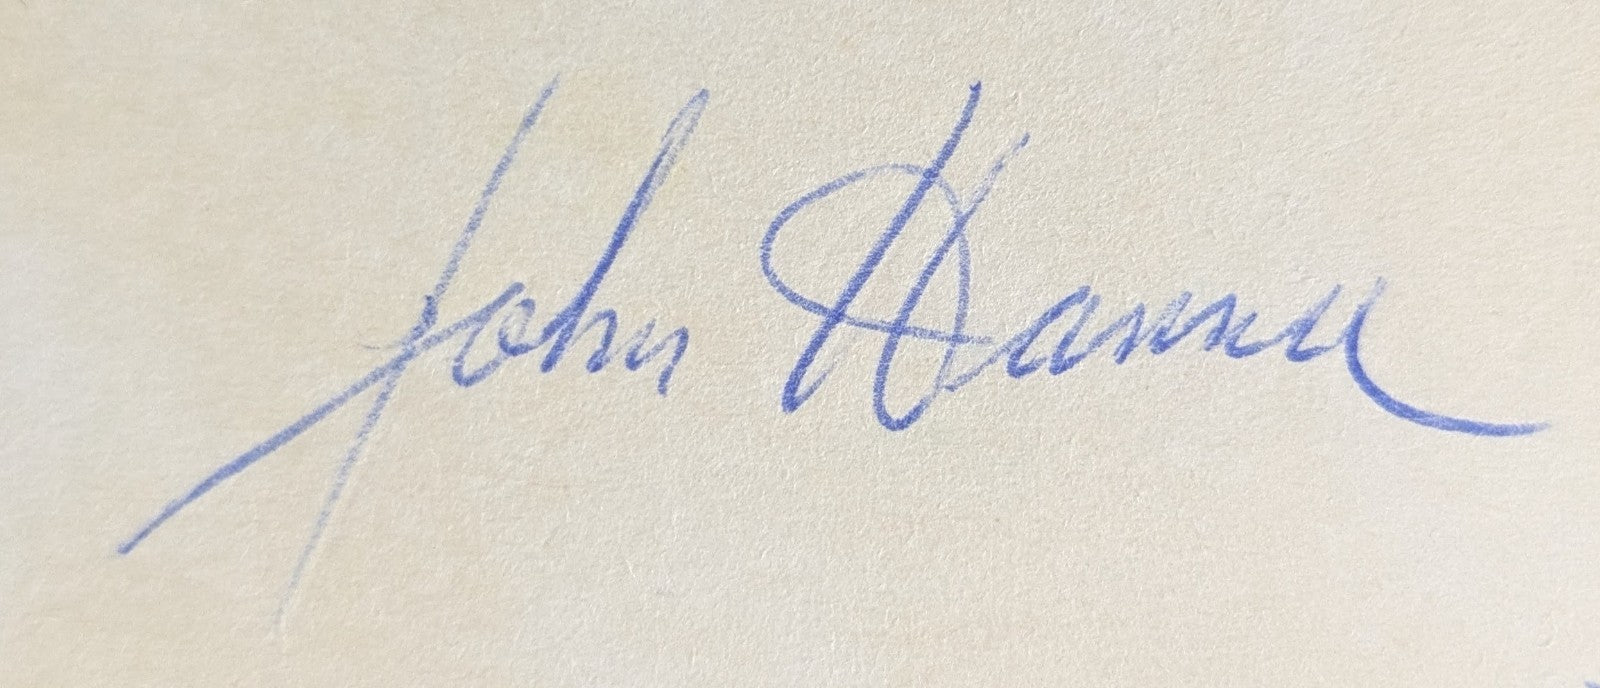 John Hanna